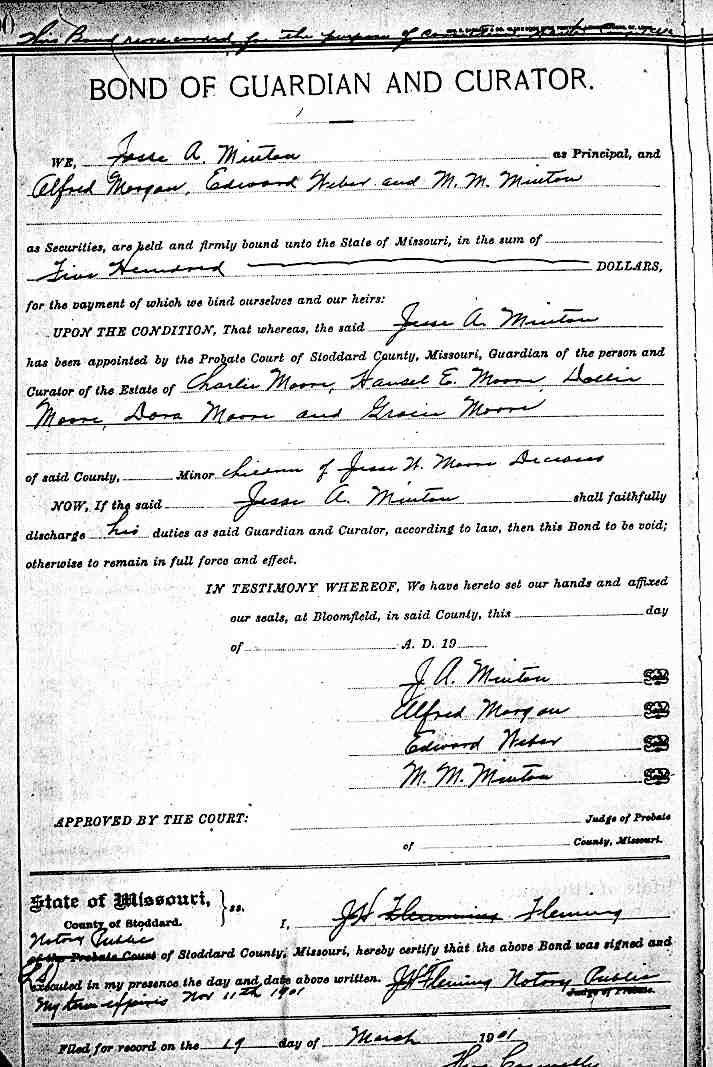 This Bond rerecorded, for the purpose of
BOND OF GUARDIAN AND CURATOR.
WE, Jesse A. Minton as Principal, and
Alfred Morgan, Edward Weber and M. M. Minton
as Securities, are held and firmly bound unto the State of Missouri, in the sum of
Five Hundred DOLLARS,
for the payment of which we bind ourselves and our heirs:
UPON THE CONDITION, That whereas, the said Jesse A. Minton
has been appointed by the Probate Court of Stoddard County, Missouri, Guardian of the person and
Curator of the Estate of Charlie Moore, Hansel E. Moore, Dollie
Moore, Dora Moore and Gracie Moore
of said County, Minor children of Jesse W. Moore Deceased
NOW, If the said Jesse A. Minton shall faithfully
discharge his duties as said Guardian and Curator, according to law, then this Bond to be void;
otherwise to remain in full force and effect.
IN TESTIMONY WHEREOF, We have hereto set our hands and affixed
our seals, at Bloomfield, in said County, this day
of A. D. 19
J. A. Minton Seal
Alfred Morgan Seal
Edward Weber Seal
M. M. Minton Seal
APPROVED BY THE COURT: Judge of Probate
of County, Missouri.
State of Missouri, } ss.
County of Stoddard. I, JH Flemming Fleming
Notary Public
of the Probate Court of Stoddard County, Missouri, hereby certify that the above Bond was signed and
(LS) executed in my presence the day and date above written. JH Fleming Notary Public
My term expires Nov 11th 1901 Judge of Probate.
Filed for record on the 19 day of March 1901